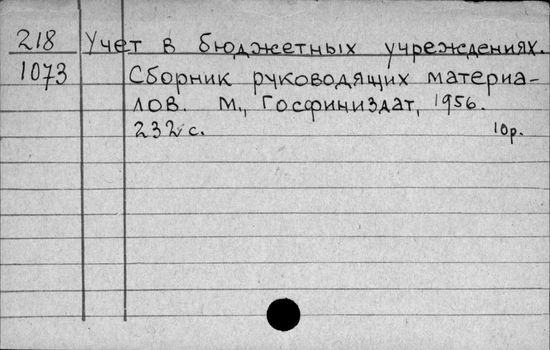 218 Учет в бюджетных учреждениях.
1073 Сборник руководящих материа-
лов. М., Госфиниздат, 1956.
232 с. 10р.